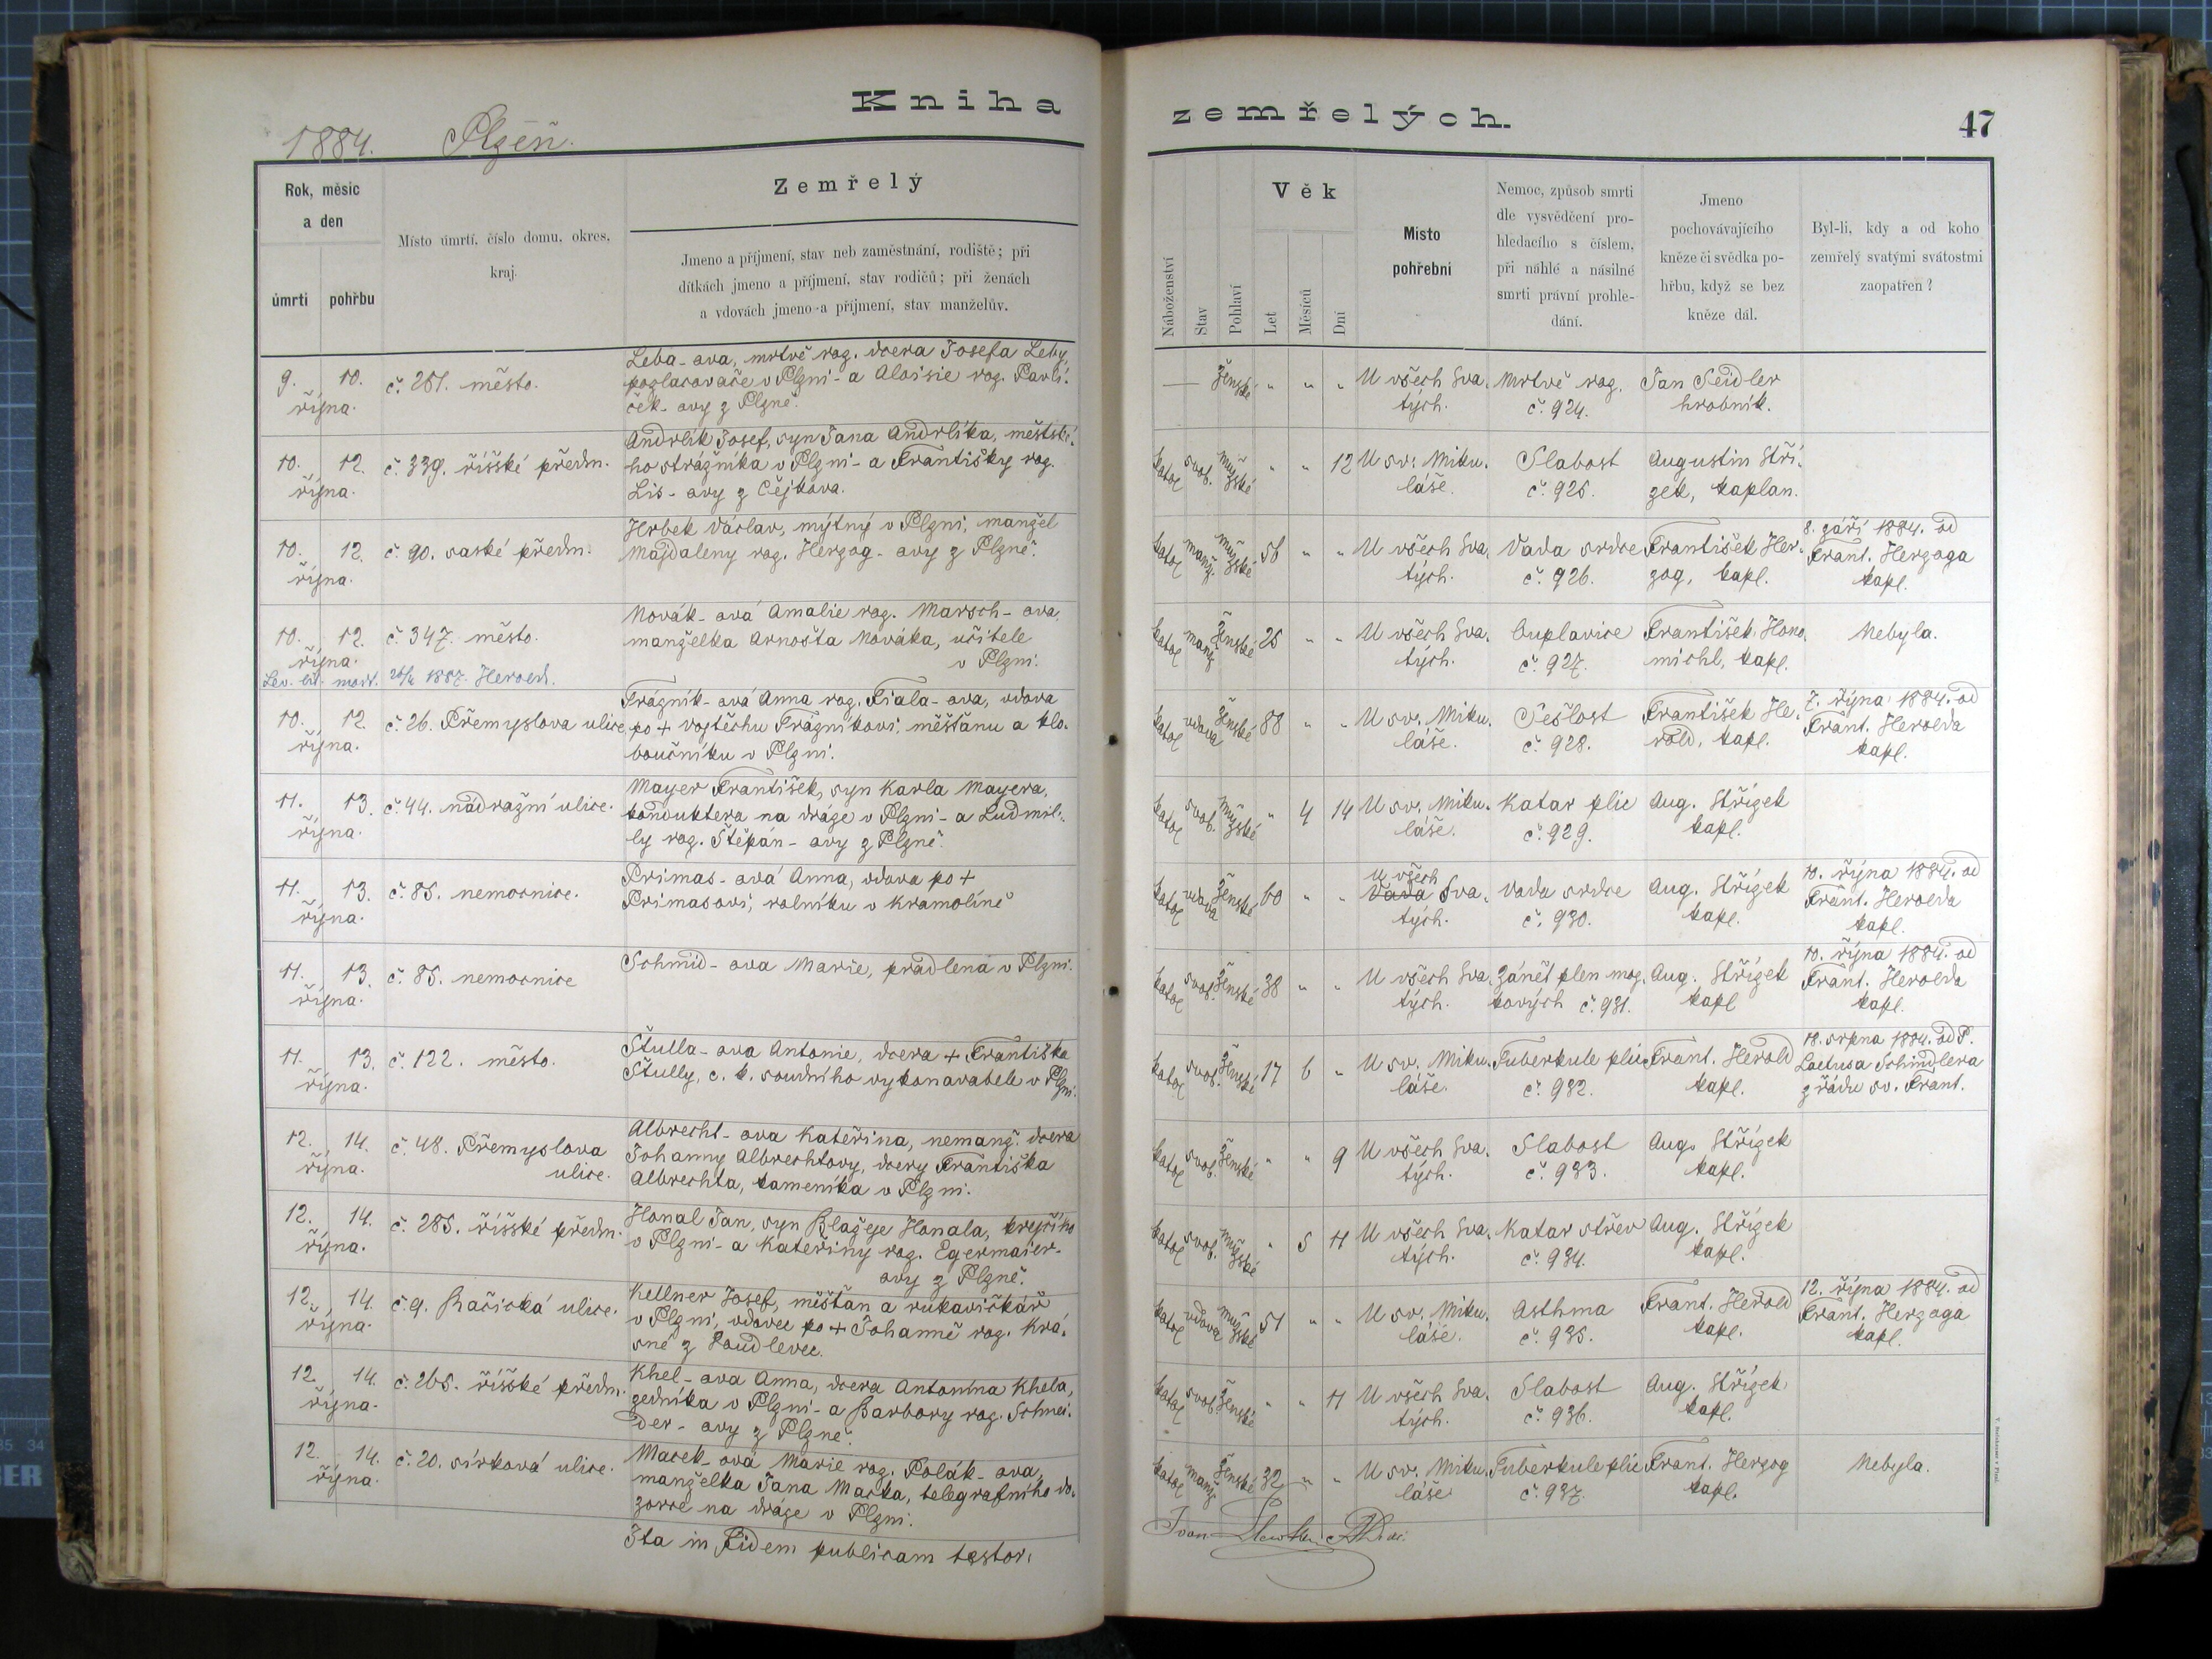 Kniha
zemřelých.
47
1884. Plzeň.
Rok, měsíc
a den
úmrtí
pohřbu
Místo úmrtí, číslo domu, okres,
kraj.
Zemřelý
Jmeno a příjmení, stav neb zaměstnání, rodiště; při
dítkách jmeno a příjmení, stav rodičů; při ženách
a vdovách jmeno a příjmení, stav manželův.
Náboženství
Stav
Pohlaví
Věk
Let
Měsíců
Dní
Místo
pohřební
Nemoc, způsob smrti
dle vysvědčení pro-
hledacího s číslem,
při náhlé a násilné
smrti právní prohle-
dání.
Jmeno
pochovávajícího
kněze či svědka po-
hřbu, když se bez
kněze dál.
Byl-li, kdy a od koho
zemřelý svatými svátostmi
zaopatřen?
9. 10.
října.
č. 251. město.
Leba-ova, mrtvě roz. dcera Josefa Leby,
pozlacovače v Plzni- a Aloisie roz. Pavlí-
ček-ovy z Plzně.
— ženské " " "
U všech Sva-
tých.
Mrtvě roz.
č. 924.
Jan Seidler
hrobník.
10. 12.
října.
č. 339. říšské předm.
Andrlík Josef, syn Jana Andrlíka, městské-
ho strážníka v Plzni- a Františky roz.
Lis-ovy z Čejkova.
katol svob. mužské " " 12
U sv. Miku-
láše.
Slabost
č. 925.
Augustin Stří-
zek, kaplan.
10. 12.
října.
č. 90. saské předm.
Hrbek Václav, mýtný v Plzni, manžel
Majdaleny roz. Herzog-ovy z Plzně.
katol manž. mužské 56 " "
U všech Sva-
tých.
Vada srdce
č. 926.
František Her-
zog, kapl.
8. září 1884. od
Frant. Herzoga
kapl.
10. 12.
října.
č. 347. město.
Novák-ová Amalie roz. Marsch-ova,
manželka Arnošta Nováka, učitele
v Plzni.
katol manž ženské 25 " "
U všech Sva-
tých.
Ouplavice
č. 927.
František Hono-
michl, kapl.
Nebyla.
1887. Herold.
10. 12.
října.
č. 26. Přemyslova ulice.
Trázník-ová Anna roz. Fiala-ova, vdova
po + Vojtěchu Trázníkovi, měšťanu a klo-
boučníku v Plzni.
katol vdova ženské 88 " "
U sv. Miku-
láše.
Sešlost
č. 928.
František He-
rold, kapl.
7. října 1884. od
Frant. Herolda
kapl.
11. 13.
října.
č. 44. nádražní ulice.
Mayer František, syn Karla Mayera,
konduktera na dráze v Plzni- a Ludmil-
ly roz. Štěpán-ovy z Plzně.
katol svob. mužské " 4 14
U sv. Miku-
láše.
Katar plic
č. 929.
Aug. Střízek
kapl.
11. 13.
října.
č. 85. nemocnice.
Primas-ová Anna, vdova po +
Primasovi, rolníku v Kramolíně
katol vdova ženské 60 " "
U všech
Vada Sva-
tých.
Vada srdce
č. 930.
Aug. Střízek
kapl.
10. října 1884. od
Frant. Herolda
kapl.
11. 13.
října.
č. 85. nemocnice
Schmid-ova Marie, pradlena v Plzni.
katol svob. ženské 38 " "
U všech Sva-
tých.
Zánět plen moz-
kových č. 931.
Aug. Střízek
kapl
10. října 1884. od
Frant. Herolda
kapl.
11. 13.
října.
č. 122. město.
Štulla-ova Antonie, dcera + Františka
Štully, c. k. soudního vykonavatele v Plzni.
katol svob. ženské 17 6 "
U sv. Miku-
láše.
Tuberkule plic
č. 932.
Frant. Herold
kapl.
18. srpna 1884. od P.
Laetusa Schindlera
z řádu sv. Frant.
12. 14.
října.
č. 48. Přemyslova
ulice.
Albrecht-ova Kateřina, nemanž. dcera
Johanny Albrechtovy, dcery Františka
Albrechta, kameníka v Plzni.
katol svob. ženské " " 9
U všech Sva-
tých.
Slabost
č. 933.
Aug. Střízek
kapl.
12. 14.
října.
č. 285. říšské předm.
Honal Jan, syn Blažeje Honala, krejčího
v Plzni- a Kateřiny roz. Egermaier-
ovy z Plzně.
katol svob. mužské " 5 11
U všech Sva-
tých.
Katar střev
č. 934.
Aug. Střízek
kapl.
12. 14.
října.
č. 9. Bačická ulice.
Kellner Josef, měšťan a rukavičkář
v Plzni, vdovec po + Johanně roz. Krá-
sné z Loudlevec.
katol vdova mužské 51 " "
U sv. Miku-
láše.
Asthma
č. 935.
Frant. Herold
kapl.
12. října 1884. od
Frant. Herzoga
kapl.
12. 14.
října.
č. 265. říšské předm.
Khel-ova Anna, dcera Antonína Khela,
zedníka v Plzni- a Barbory roz. Schnei-
der-ovy z Plzně.
katol svob. ženské " " 11
U všech Sva-
tých.
Slabost
č. 936.
Aug. Střízek,
kapl.
12. 14.
října.
č. 20. sirková ulice.
Macek-ová Marie roz. Polák-ova,
manželka Jana Macka, telegrafního do-
zorce na dráze v Plzni.
katol manž ženské 32 " "
U sv. Miku-
láše
Tuberkule plic
č. 937.
Frant. Herzog
kapl.
Nebyla.
Ita in fidem publicam testor.